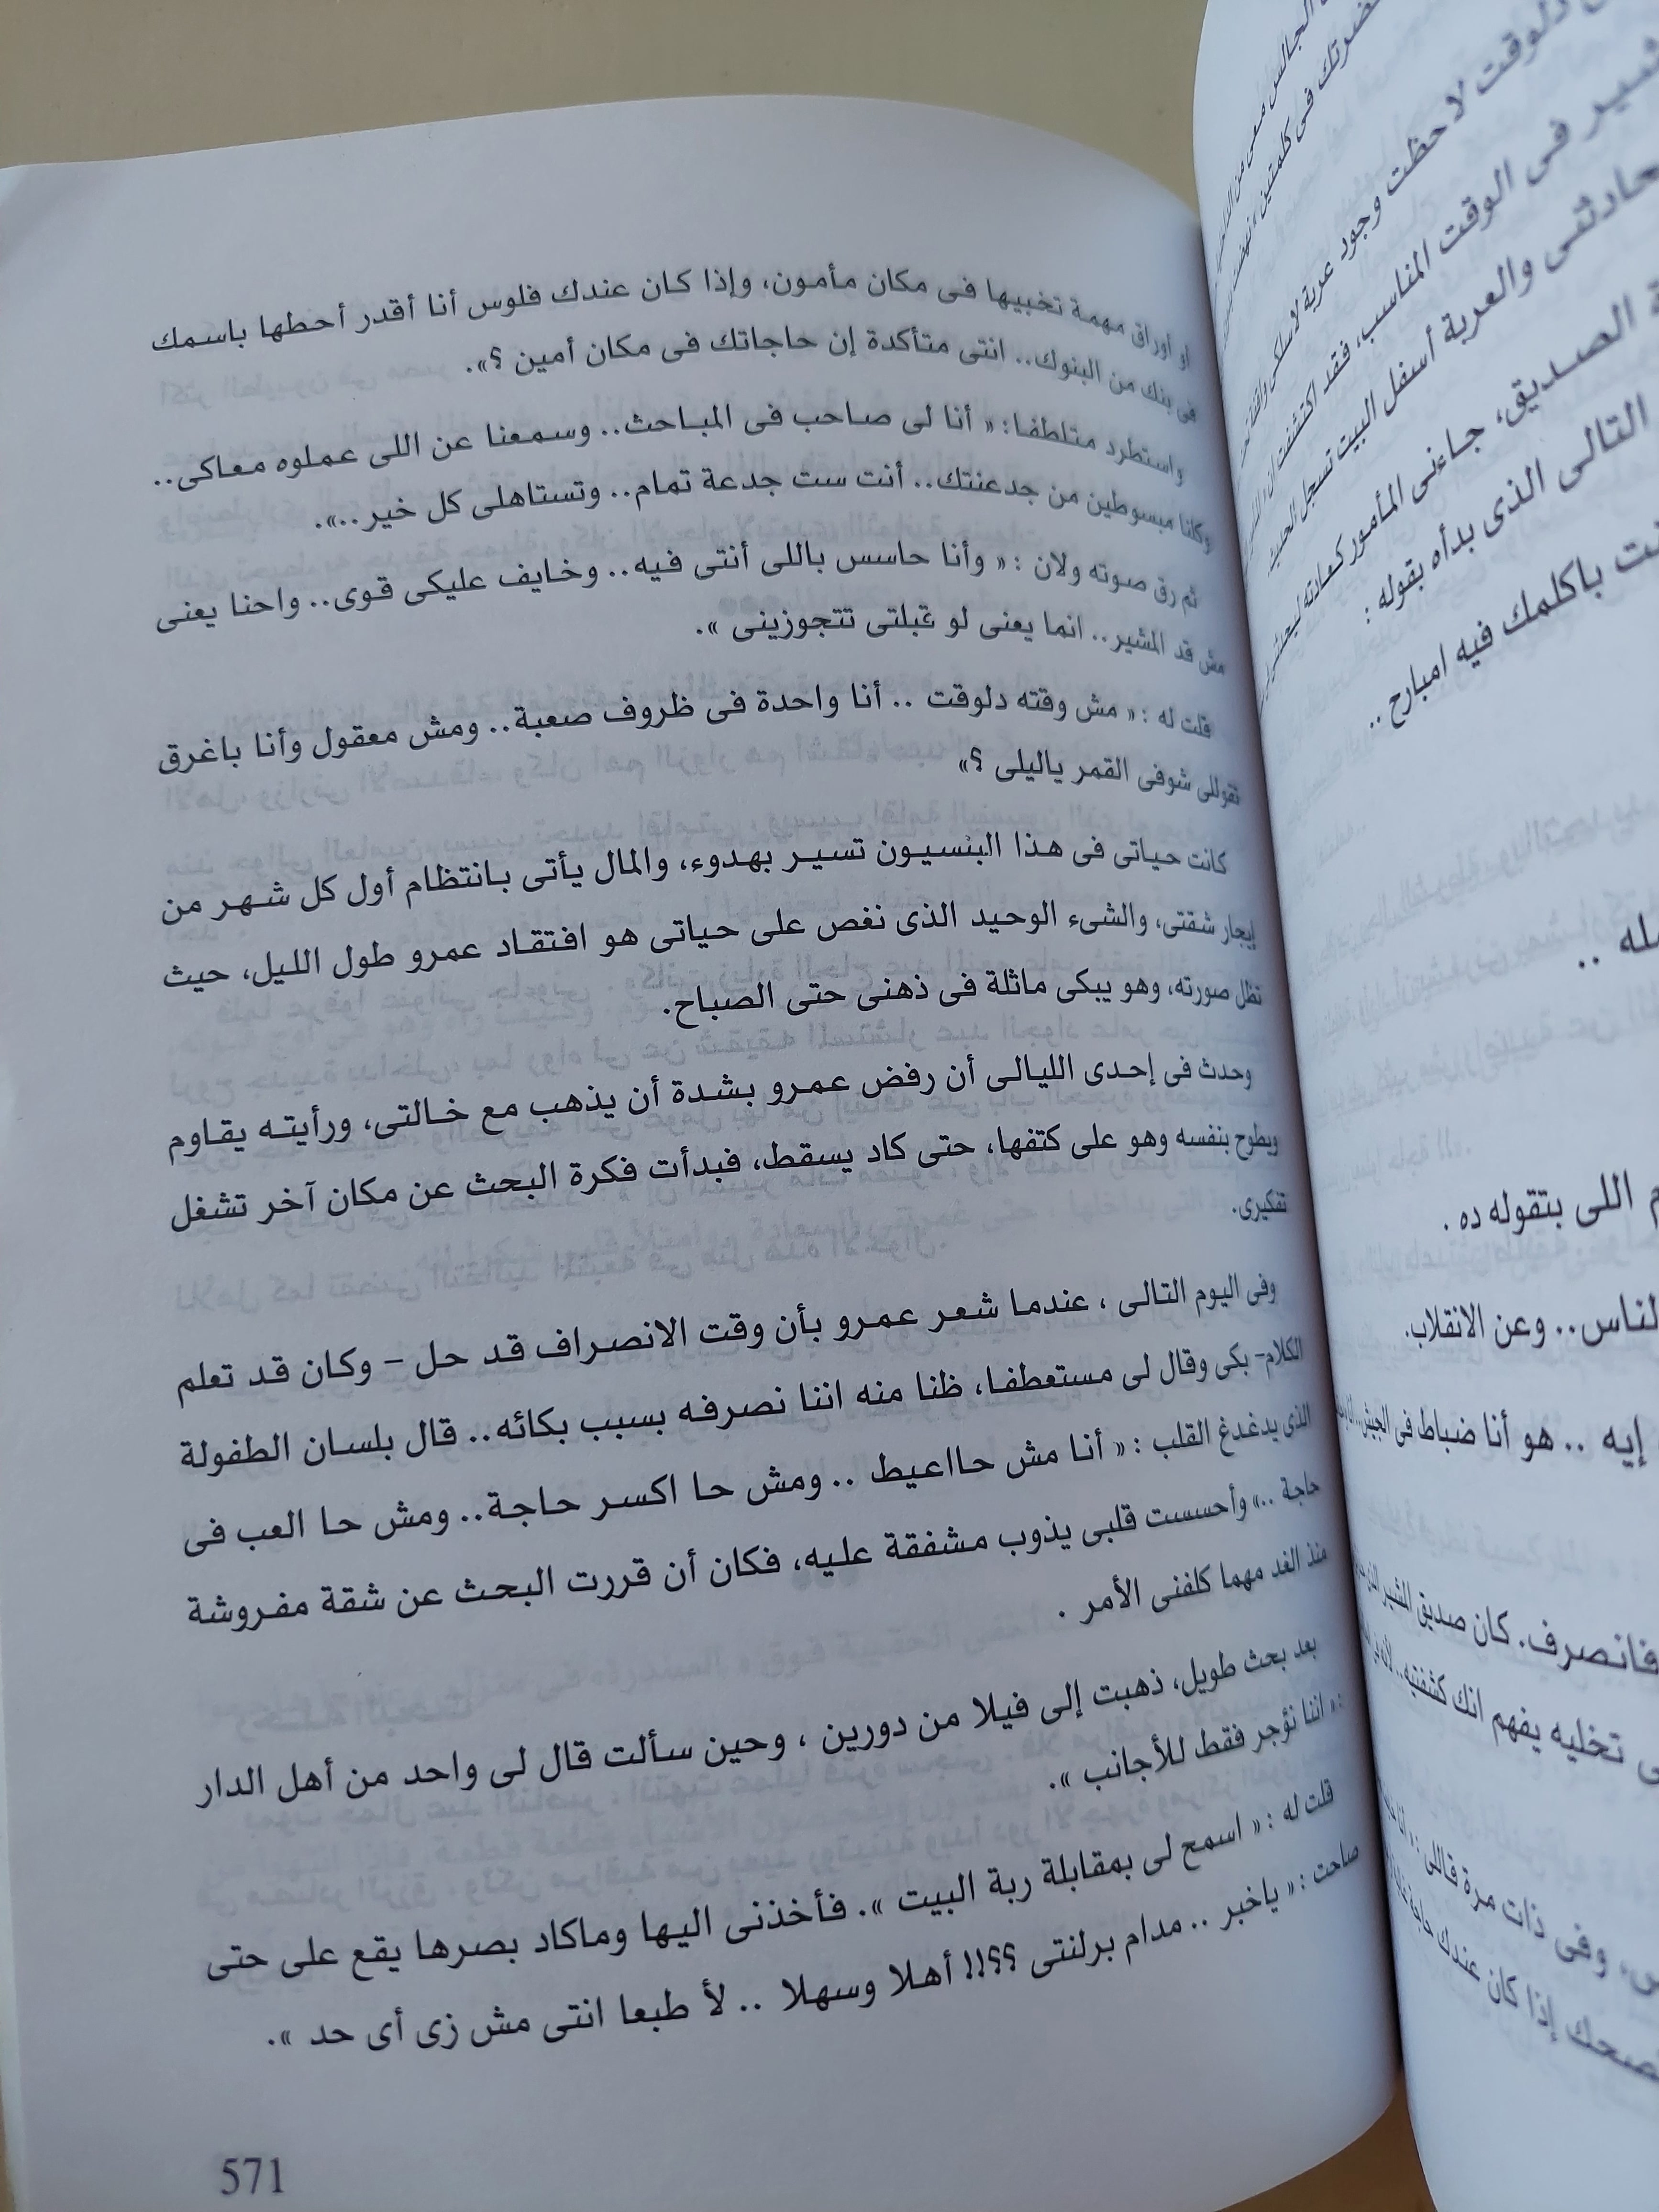 أو أوراق مهمة تخبيها فى مكان مأمون، وإذا كان عندك فلوس أنا أقدر أحطها باسمك
فى بنك من البنوك.. انتى متأكدة إن حاجاتك فى مكان أمين ؟».
واستطرد متلطفا: « أنا لى صاحب فى المباحث.. وسمعنا عن اللى عملوه معاكى..
وكنا مبسوطين من جدعنتك.. أنت ست جدعة تمام.. وتستاهلى كل خير..».
ثم رق صوته ولان : « وأنا حاسس باللى أنتى فيه.. وخايف عليكى قوى.. واحنا يعنى
مش قد المشير.. انما يعنى لو قبلتى تتجوزينى ».
قلت له : « مش وقته دلوقت .. أنا واحدة فى ظروف صعبة.. ومش معقول وأنا باغرق
تقوللى شوفى القمر ياليلى ؟»
كانت حياتى فى هذا البنسيون تسير بهدوء، والمال يأتى بانتظام أول كل شهر من
إيجار شقتى، والشىء الوحيد الذى نغص على حياتى هو افتقاد عمرو طول الليل، حيث
تظل صورته، وهو يبكى ماثلة فى ذهنى حتى الصباح.
وحدث فى إحدى الليالى أن رفض عمرو بشدة أن يذهب مع خالتى، ورأيته يقاوم
ويطوح بنفسه وهو على كتفها، حتى كاد يسقط، فبدأت فكرة البحث عن مكان آخر تشغل
تفكيرى.
وفى اليوم التالى ، عندما شعر عمرو بأن وقت الانصراف قد حل – وكان قد تعلم
الكلام– بكى وقال لى مستعطفا، ظنا منه اننا نصرفه بسبب بكائه.. قال بلسان الطفولة
الذى يدغدغ القلب : « أنا مش حااعيط .. ومش حا اكسر حاجة.. ومش حا العب فى
حاجة ..» وأحسست قلبى يذوب مشفقة عليه، فكان أن قررت البحث عن شقة مفروشة
منذ الغد مهما كلفنى الأمر .
بعد بحث طويل، ذهبت إلى فيلا من دورين ، وحين سألت قال لى واحد من أهل الدار
: « اننا نؤجر فقط للأجانب ».
قلت له : « اسمح لى بمقابلة ربة البيت ». فأخذنى اليها وماكاد بصرها يقع على حتى
صاحت : « ياخبر .. مدام برلنتى ؟؟!! أهلا وسهلا .. لأ طبعا انتى مش زى أى حد ».
571
دلوقت لا حظت وجود عربة لاسلكى
فى الوقت المناسب، فقد اكتشفت ان
حادثنى والعربة أسفل البيت تسجل الحديث.
الصديق، جاءنى المأمور كعادته
التالى الذى بدأه بقوله :
باكلمك فيه امبارح ..
اللى بتقوله ده .
لناس.. وعن الانقلاب.
إيه .. هو أنا ضباط فى الجيش
فانصرف. كان صديق المشير
تخليه يفهم انك كشفتيه..
وفى ذات مرة قاللى : « أنا
إذا كان عندك حاجة